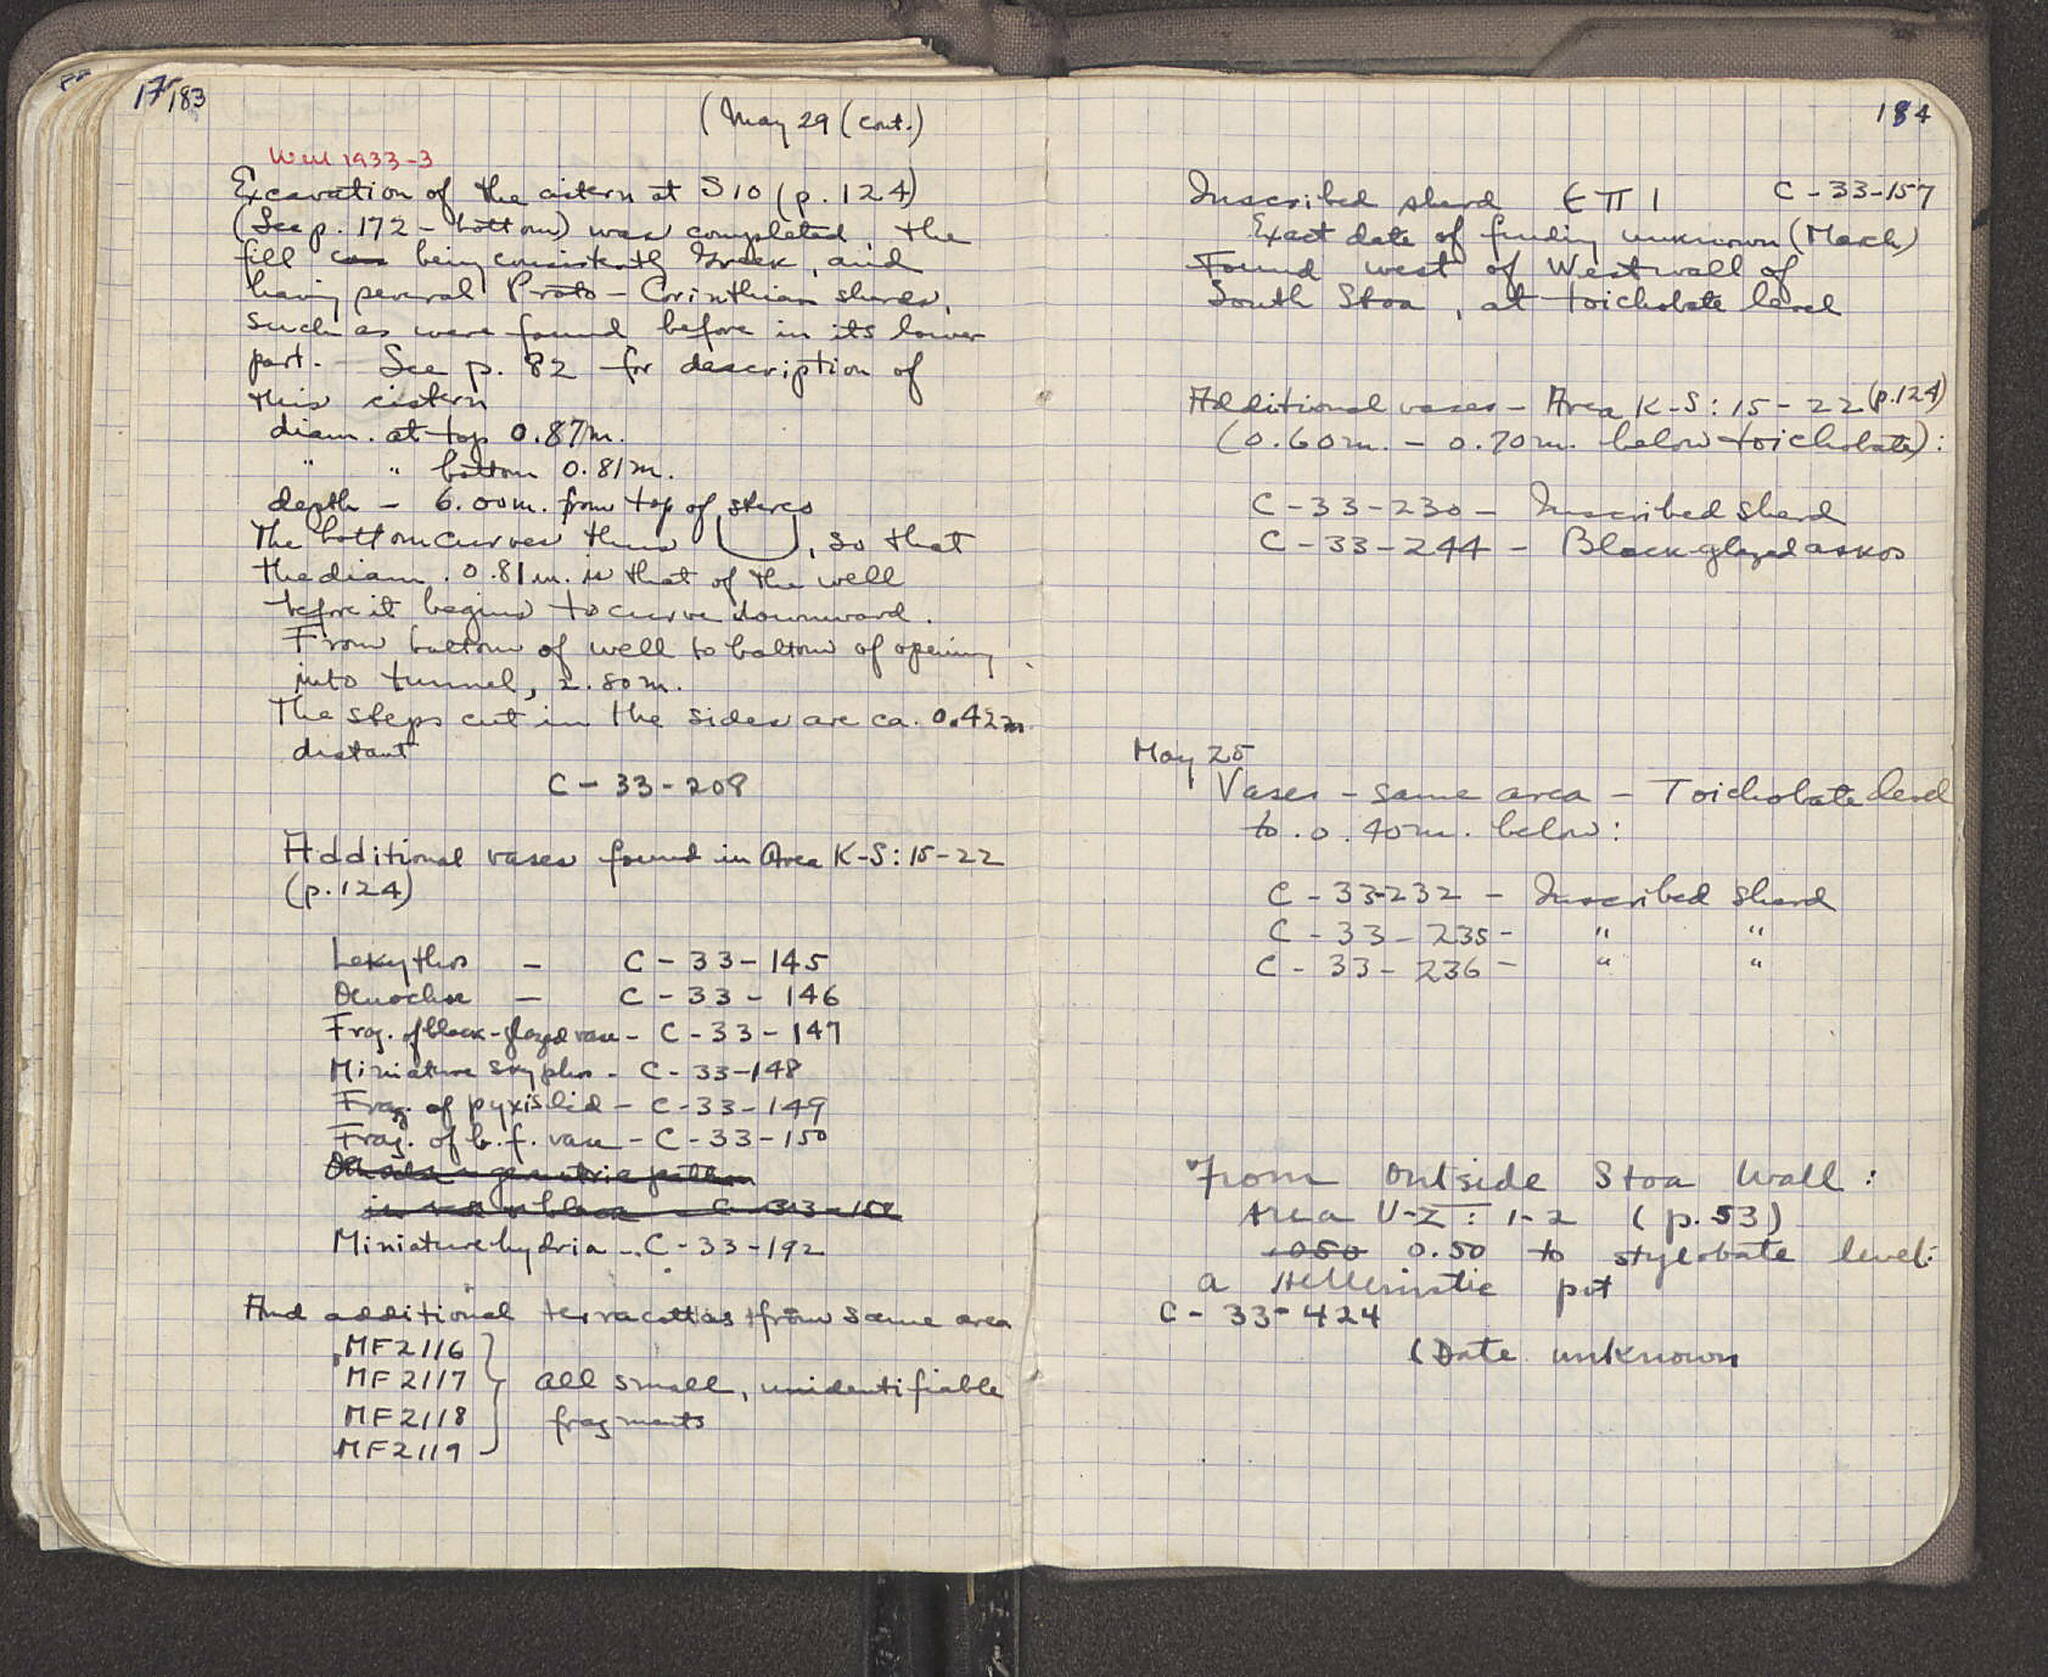 183
(May 29 (cont.)
Well 1933-3
Excavation of the cistern at S10 (p. 124)
(See p. 172 - bottom) was completed, the
fill being consistently Greek, and
having several Proto-Corinthian sherds,
such as were found before in its lower
part. - See p. 82 for description of
this cistern
diam. at top 0.87m.
" " bottom 0.81m.
depth - 6.00m. from top of stereo
The bottom curves thus , so that
the diam. 0.81m. is that of the well
before it begins to curve downward.
From bottom of well to bottom of opening
into tunnel, 2.80m.
The steps cut in the sides are ca. 0.42m.
distant
C-33-208
Additional vases found in Area K-S: 15-22
(p. 124)
Lekythos - C-33-145
Oinochoe - C-33-146
Frag. of black-glazed vase - C-33-147
Miniature skyphos - C-33-148
Frag. of pyxis lid - C-33-149
Frag. of b.f. vase - C-33-150
Miniature hydria - C-33-192
And additional terracottas from same area
MF2116
MF2117 all small, unidentifiable
MF2118 fragments
MF2119
184
Inscribed sherd ЄΠI C-33-157
Exact date of finding unknown (March)
Found west of West wall of
South Stoa, at toichobate level
Additional vases - Area K-S: 15-22 (p. 124)
(0.60m. - 0.70m. below toichobate):
C-33-230 - Inscribed sherd
C-33-244 - Black-glazed askos
May 25
Vases - same area - Toichobate level
to 0.40m. below:
C-33-232 - Inscribed sherd
C-33-235 - " "
C-33-236 - " "
From outside Stoa Wall:
Area U-Z: 1-2 (p. 53)
0.50 0.50 to stylobate level:
a Hellenistic pot
C-33-424
(Date unknown